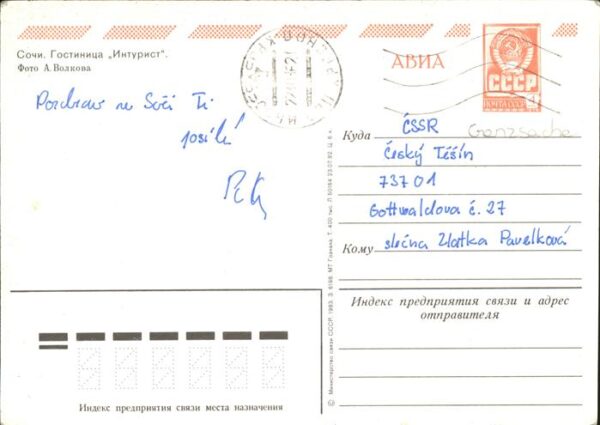 Сочи. Гостиница „Интурист".
Фото А. Волкова
АВИА
СССР
Pozdrav ze Soči Ti
posílá
Куда ČSSR
Český Těšín
73701
Gottwaldova č. 27
Кому slečna Zlatka Pavelková
Ganzsache
Индекс предприятия связи и адрес
отправителя
Индекс предприятия связи места назначения
© Министерство связи СССР, 1983. З. 6198. МТ Гознака. Т. 400 тыс.